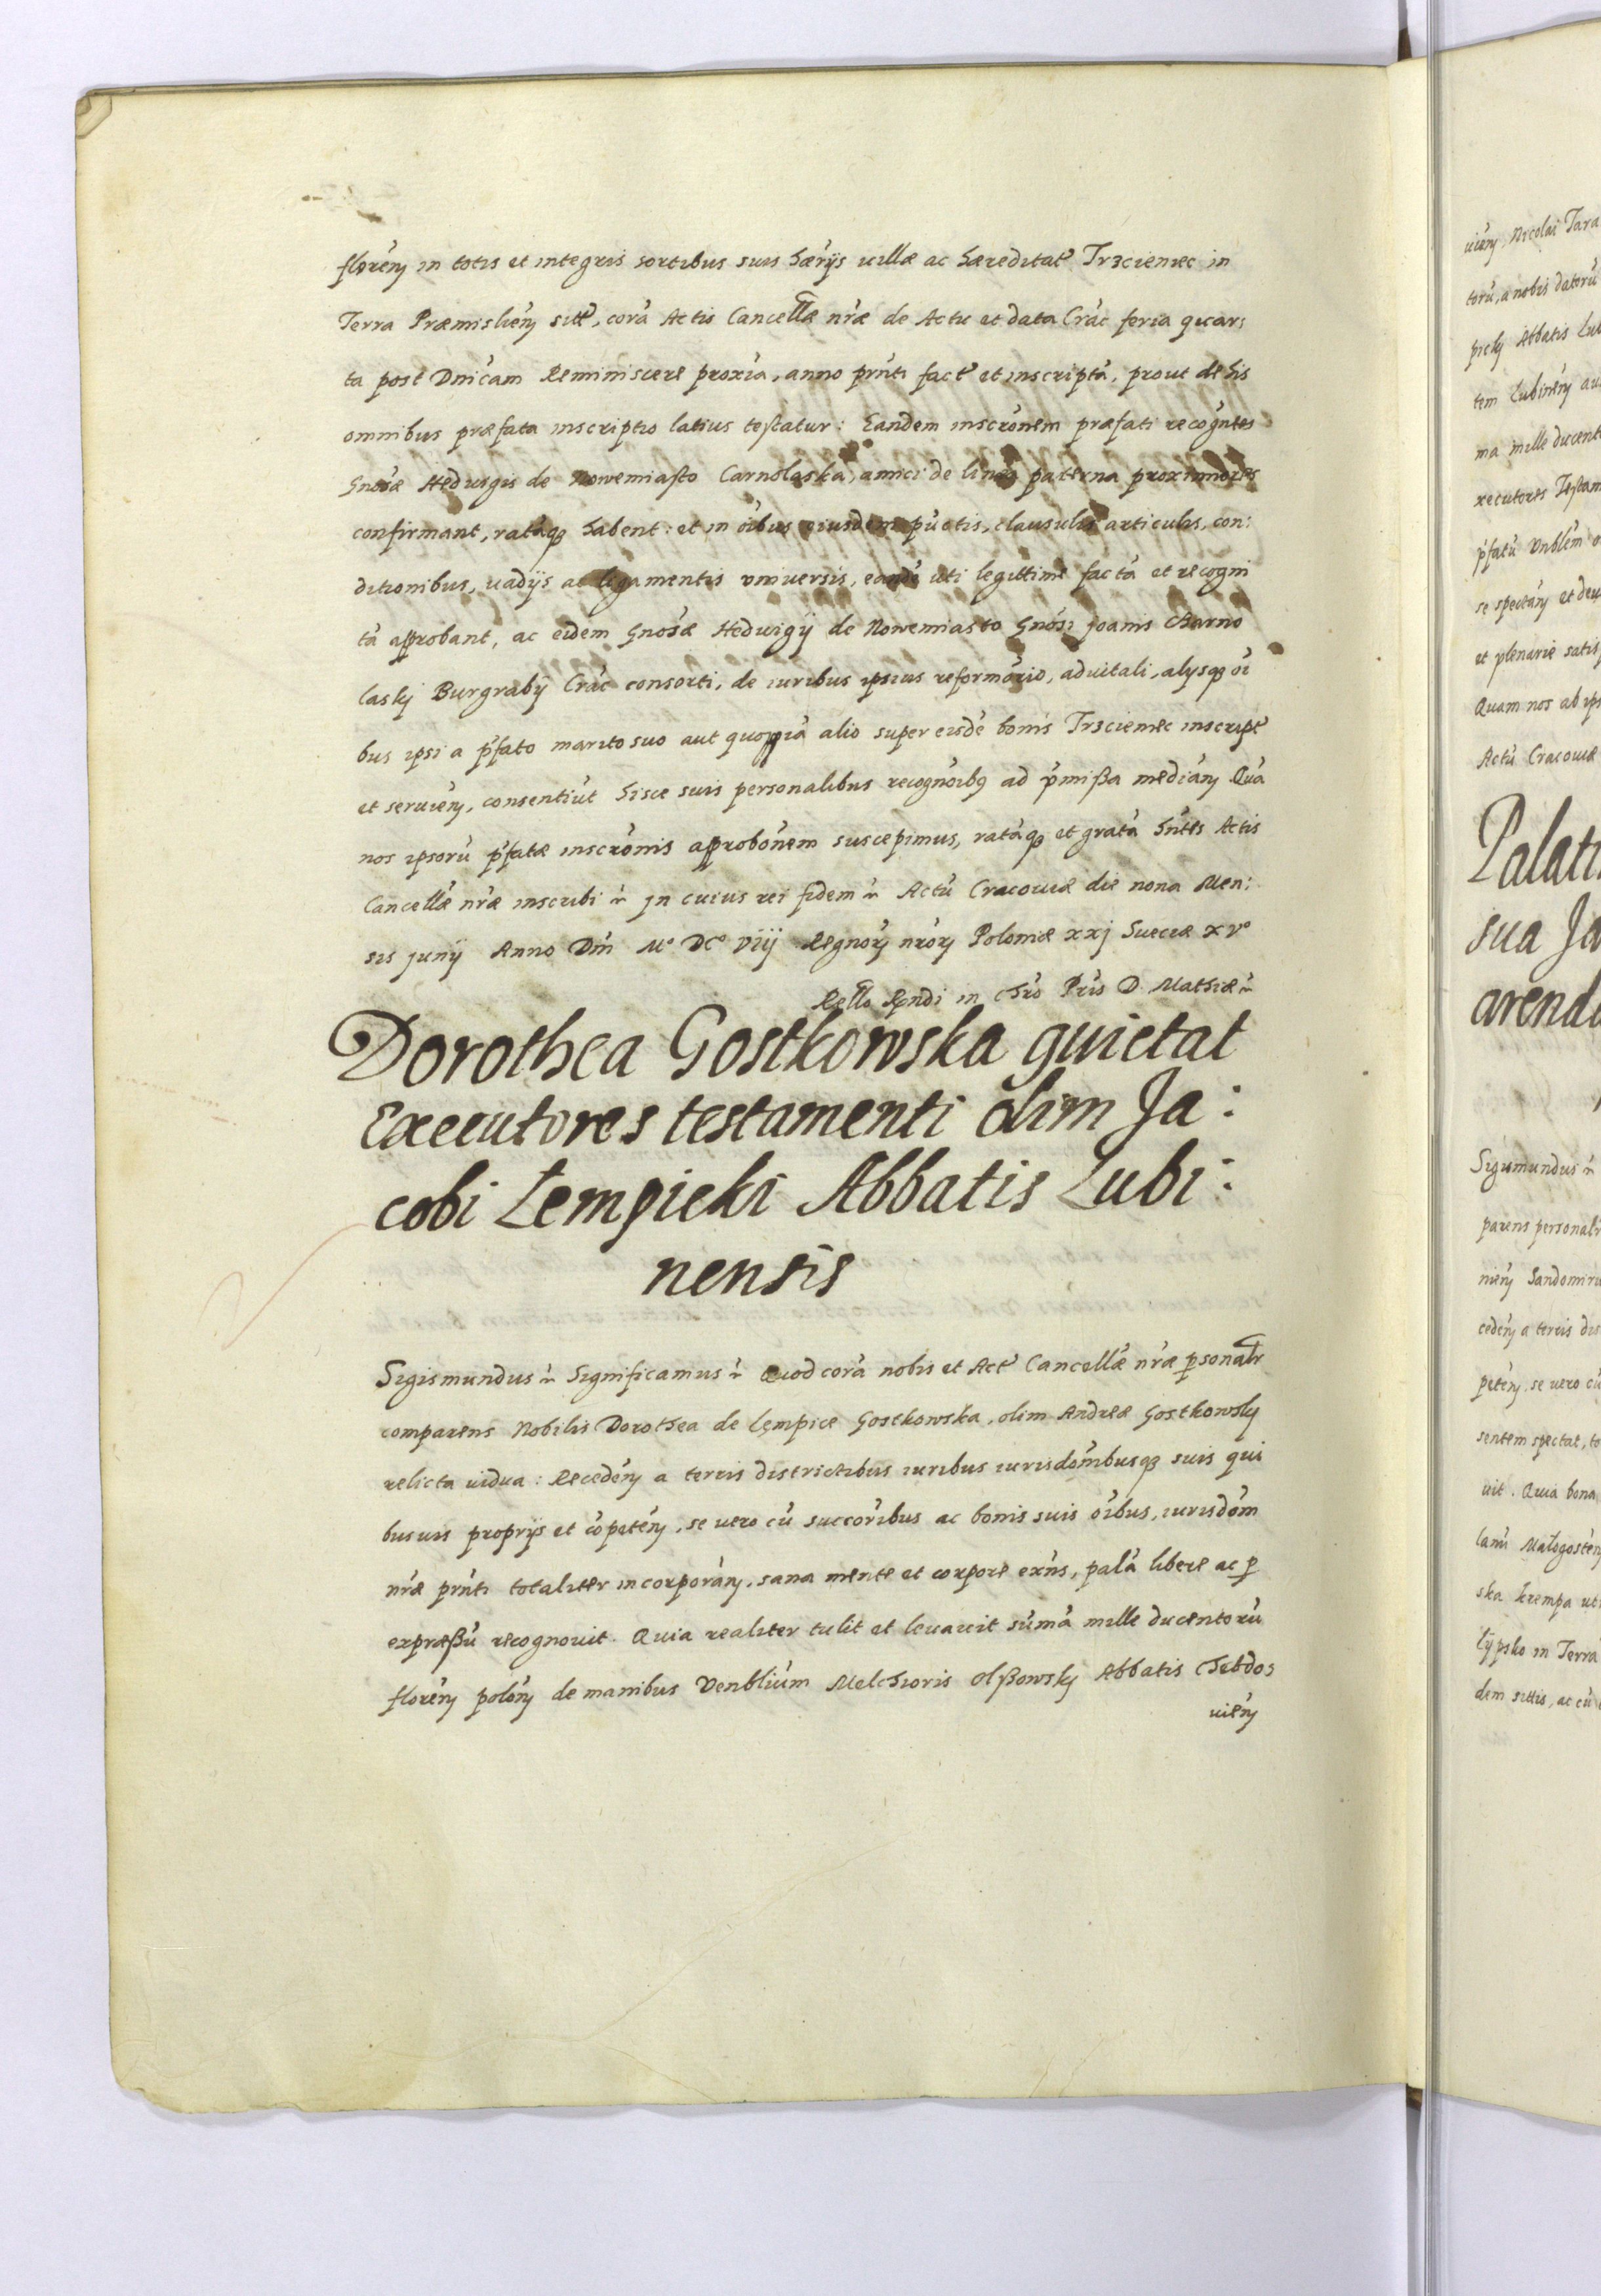 floreń in totis et integris sortibus suis hærijs villæ ac hæreditate Trzcieniec in
Terra Præmislień sitt, corā Actis Cancellæ nræ de Actu et data Crac feria quar:
ta post Dnicam Reminiscere proxia, anno prnti fact et inscriptā, prout de his
omnibus præfata inscriptio latius testatur: Eandem inscronem præfati recogntes
Gnosæ Hedvigis de Nowemiasto Carnolaska, amici de linea paterna proximiores
confirmant, ratāq habent: et in oibus eiusdem puctis, clausulis articulis, con:
ditionibus, vadijs ac ligamentis vniversis, eandē uti legittime factā et recogni
tā approbant, ac eidem Gnosæ Hedvigij de Nowemiasto Gnosi Joanis Charno
laskj Burgrabij Crac consorti, de iuribus ipsius reformorio, advitali, alysq oi
bus ipsi a pfato marito suo aut quopiā alio super eisdē bonis Trzcieniec inscript
et servień, consentiut hisce suis personalibus recognoibq ad pmißa mediań Quā
nos ipsorū pfatæ inscronis approbonem suscepimus, ratāq et gratā hntes Actis
Cancellæ nræ inscribi in cuius rei fidem Actū Cracoviæ die nona Men:
sis Junij Anno Dni M° DC° viij Regnorꝝ nrorꝝ Poloniæ xxj Sueciæ xv°
Rello Rndi in Chro Pris D. Mathiæ
Dorothea Gostkowska quietat
Executores testamenti olim Ja:
cobi Łempicki Abbatis Lubi:
nensis
Sigismundus Significamus Quod corā nobis et Act Cancellæ nræ psonalr
comparens Nobilis Dorothea de Łempice Gostkowska, olim Andreæ Gostkowskj
relicta vidua: Recedeń a terris districtibus iuribus iurisdombusq suis qui
busuis proprijs et cōpeteń, se vero cū succoribus ac bonis suis oibus, iurisdom
nræ prnti totaliter incorporań, sana mente et corpore exns, palā libere ac p
expræßū recognovit. Quia realiter tulit et levavit sumā mille ducentorū
floreń poloń de manibus Venblium Melchioris Olßowskj Abbatis Chebdo:
vień
vień Nicolai Tara
torū, a nobis datorū
pickj Abbatis Lub
tem Lubineń
ma mille ducent
xecutores Testam
pfatū Vnblem
se spectań et dev
et plenarie satis
Quam nos ab ips
Actū Cracoviæ
Palati
sua Ja
arend
Sigismundus
parens personalr
nień Sandomir
cedeń a terris dis
peteń, se vero cū
sentem spectat, to
vit. Quia bona
lanū Małogosteń
ska krempa ut
Lijpsko in Terra
dem sittis, ac cū